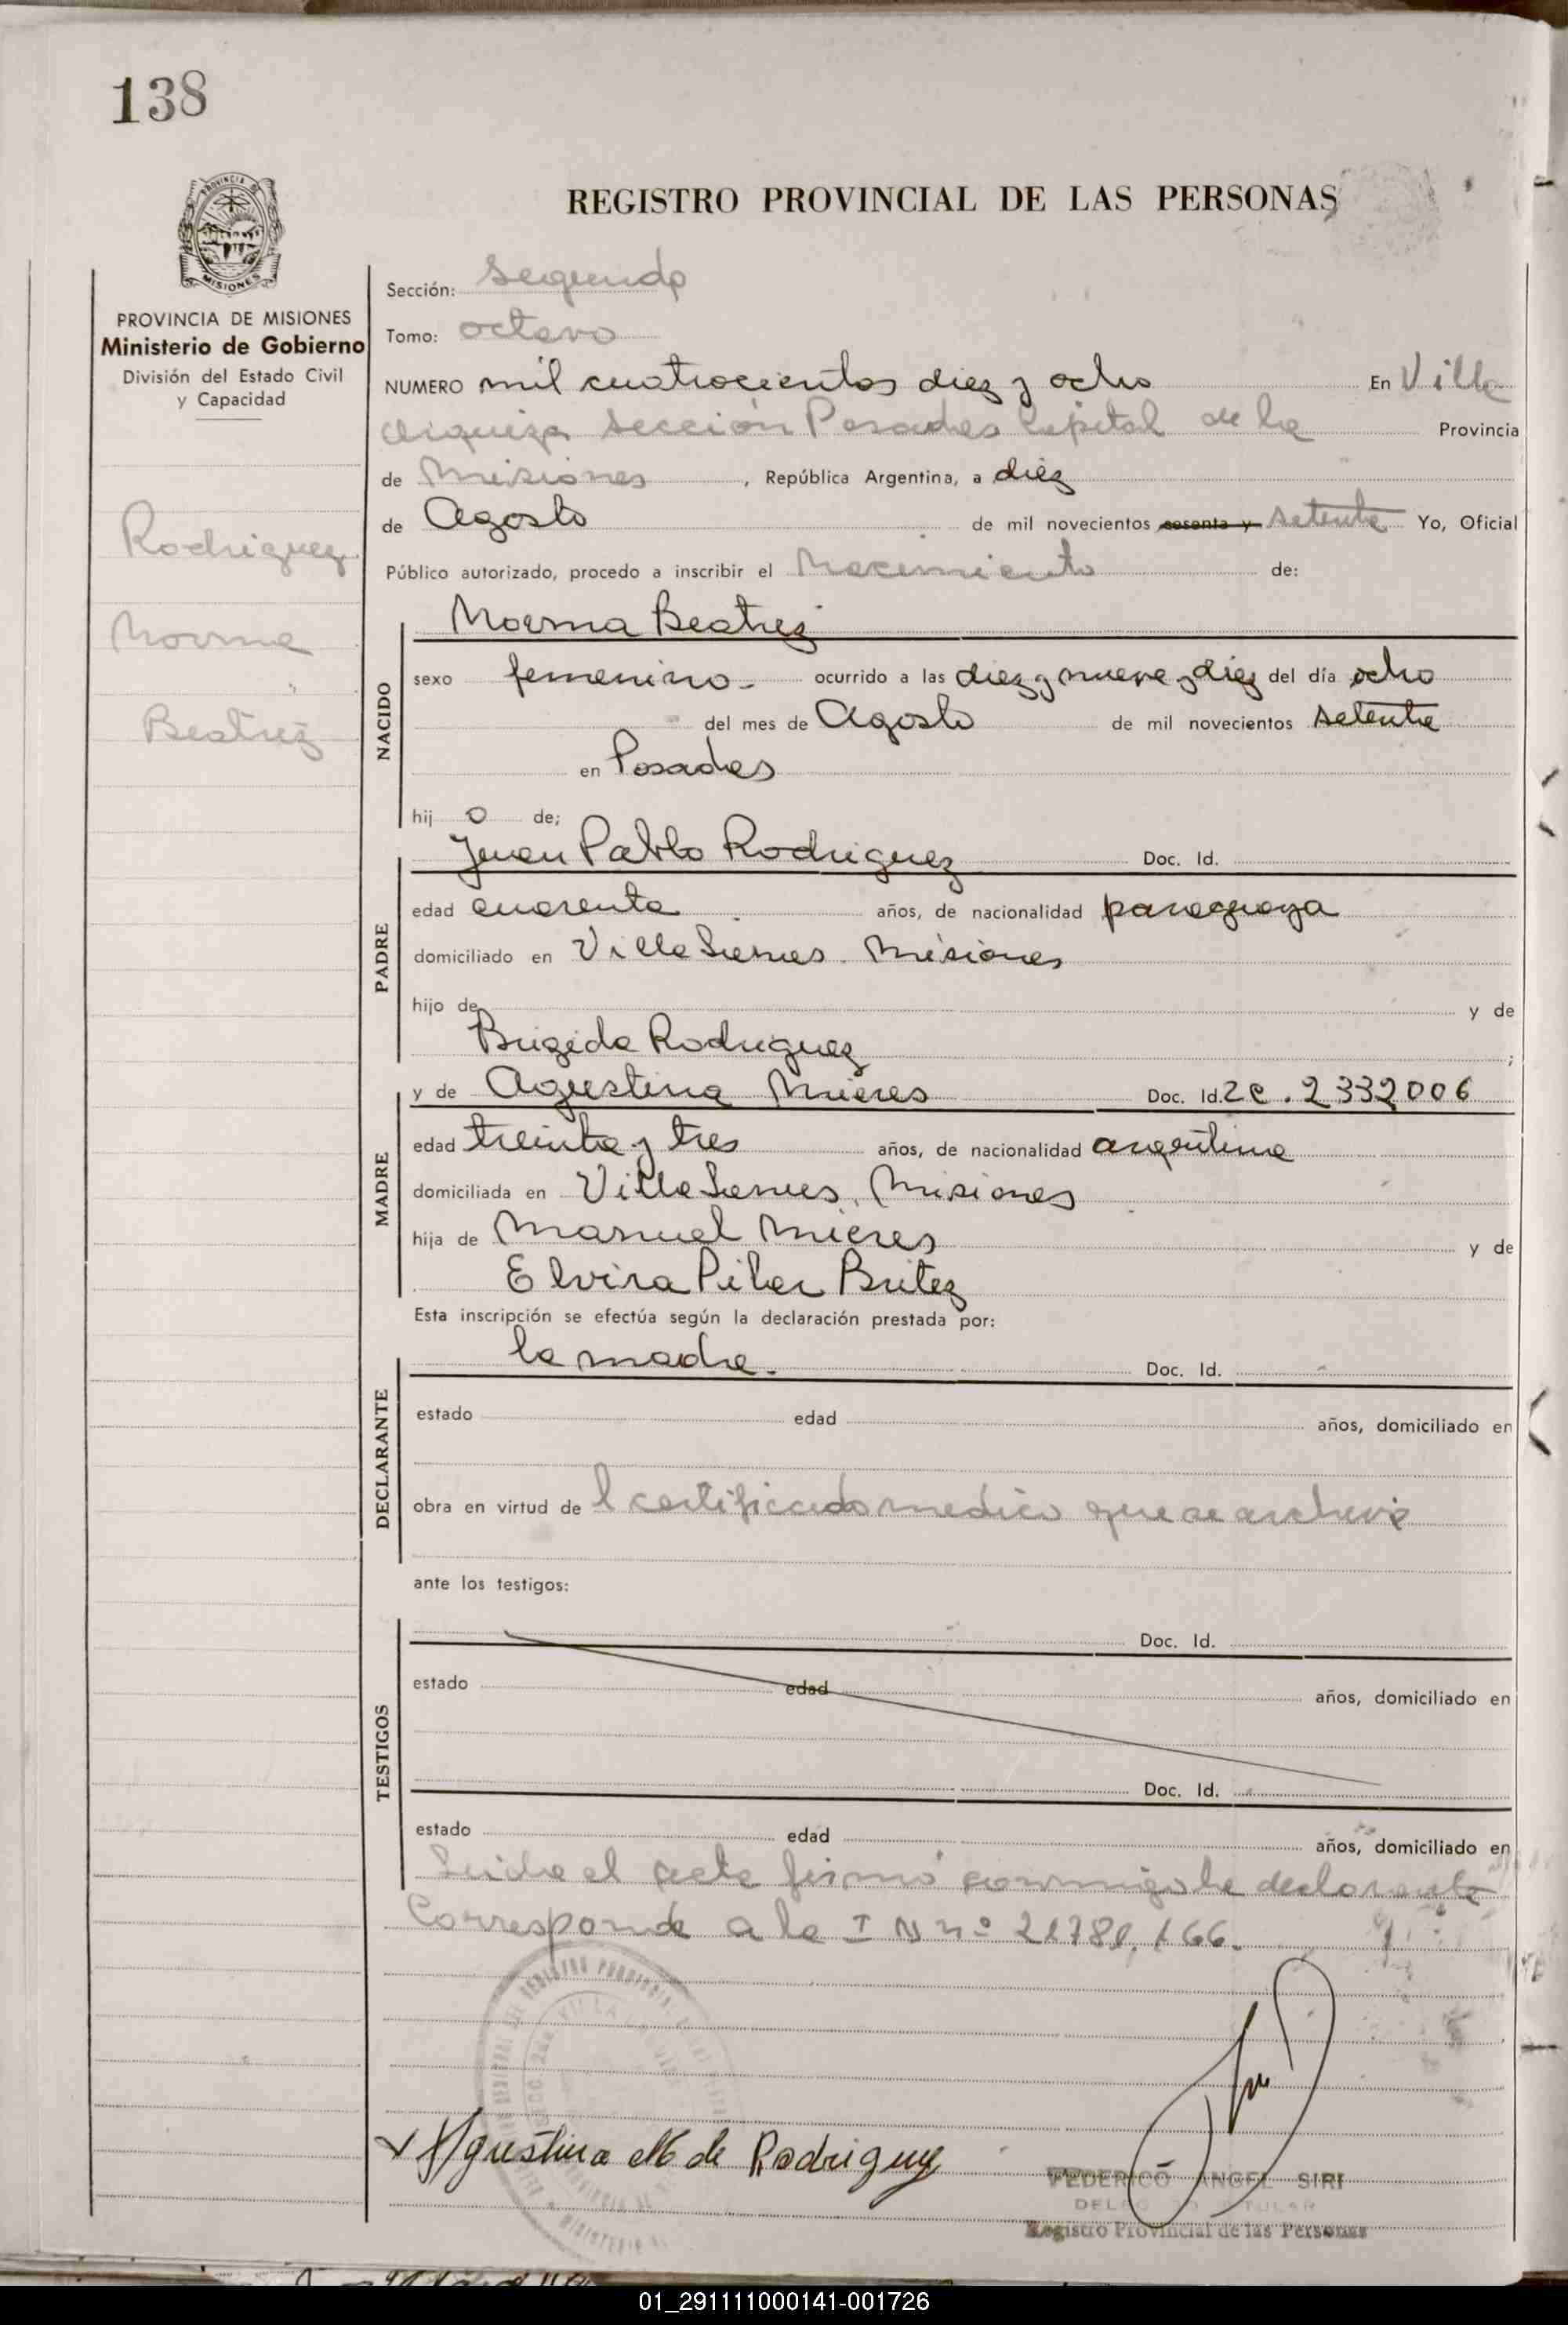 138
REGISTRO PROVINCIAL DE LAS PERSONAS
PROVINCIA DE
MISIONES
PROVINCIA DE MISIONES
Ministerio de Gobierno
División del Estado Civil
y Capacidad
Rodriguez
Norma
Beatriz
Sección: segunda
Tomo: octavo
NUMERO mil cuatrocientos diez y ocho En Villa
Urquiza sección Posadas Capital de la Provincia
de Misiones, República Argentina, a diez
de Agosto de mil novecientos sesenta y setenta Yo, Oficial
Público autorizado, procedo a inscribir el Nacimiento de:
NACIDO
Norma Beatriz
sexo femenino.- ocurrido a las diez y nueve y diez del día ocho
del mes de Agosto de mil novecientos setenta
en Posadas
hij a de;
PADRE
Juan Pablo Rodriguez Doc. Id.
edad cuarenta años, de nacionalidad paraguaya
domiciliado en Villa Misiones
hijo de y de
Brigida Rodriguez ;
MADRE
y de Agustina Mieres Doc. Id. 2332006
edad treinta y tres años, de nacionalidad argentina
domiciliada en Villa Misiones
hija de Manuel Mieres y de
Elvira Pilar Britez
Esta inscripción se efectúa según la declaración prestada por:
DECLARANTE
la madre. Doc. Id.
estado edad años, domiciliado en
obra en virtud de l certificado medico que se archiva
ante los testigos:
TESTIGOS
Doc. Id.
estado edad años, domiciliado en
Doc. Id.
estado edad años, domiciliado en
Leida el acta firmó conmigo la declarante
Corresponde a la I N nº 21.781.166.
Agustina M de Rodriguez
FEDERICO ANGEL SIRI
Registro Provincial de las Personas
01_291111000141-001726